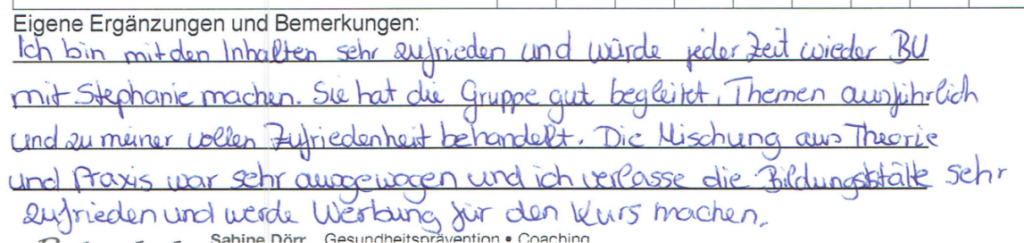 Eigene Ergänzungen und Bemerkungen:
Ich bin mit den Inhalten sehr zufrieden und würde jeder Zeit wieder BU
mit Stephanie machen. Sie hat die Gruppe gut begleitet, Themen ausführlich
und zu meiner vollen Zufriedenheit behandelt. Die Mischung aus Theorie
und Praxis war sehr ausgewogen und ich verlasse die Bildungsstätte sehr
zufrieden und werde Werbung für den Kurs machen.
Sabine Dörr Gesundheitsprävention • Coaching